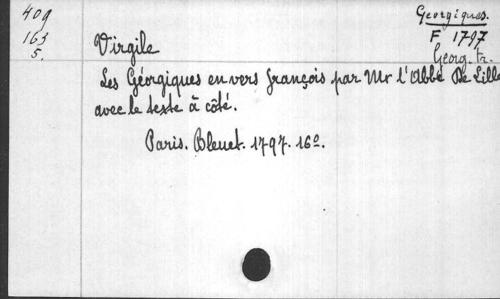 409
163
5.
Georgiques.
F 1797
Georg. tr.
Virgile
Les Géorgiques en vers françois par Mr l'Abbé De Lille
avec le texte à côté.
Paris. Bleuet. 1797. 16º.